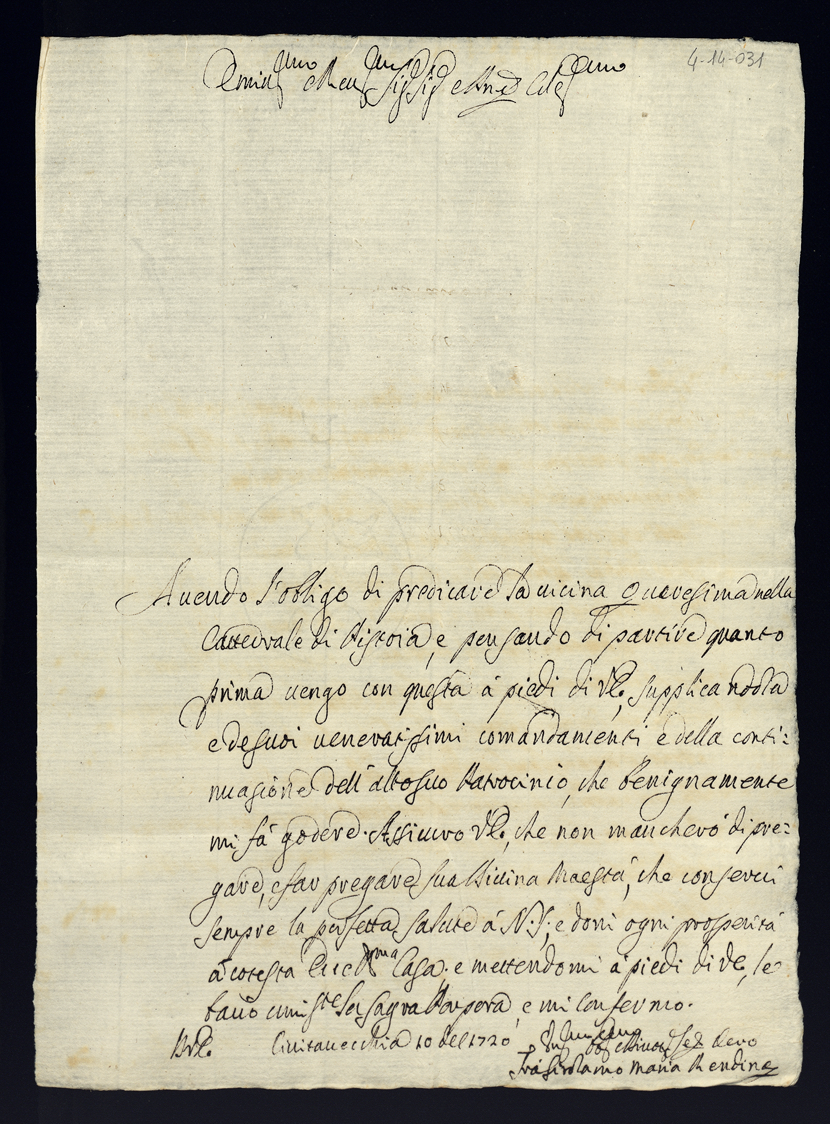 4-14-031
Emin.mo e Reu.mo Sig.r Sig.r e Pne Col.mo
Auendo l'obligo di predicare la uicina Quaresima nella
Cattedrale di Pistoia, e pensando di partire quanto
prima uengo con questa à piedi di VE, supplicandola
e de suoi ueneratissimi comandamenti e della conti:
nuasione dell'alto suo Patrocinio, che benignamente
mi fà godere. Assicuro VE, che non mancherò di pre:
gare, e far pregare Sua Diuina Maestà, che conserui
sempre la perfetta salute à N.S; e doni ogni prosperità
à cotesta Ecc.ma Casa. e mettendomi à piedi di VE, le
bacio umil.te la sagra Porpora, e mi confermo.
DVE. Ciuitauecchia 10 del 1720
Vm.mo Seru
Fra Girolamo Maria Rendina